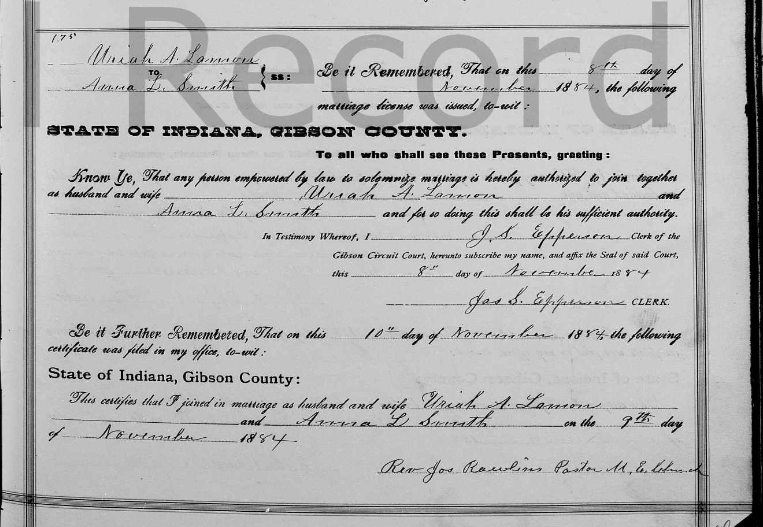 Record
175
Uriah A. Lamon
TO
Anna L. Smith
ss:
Be it Remembered, That on this 8th day of
November 1884, the following
marriage license was issued, to-wit:
STATE OF INDIANA, GIBSON COUNTY.
To all who shall see these Presents, greeting:
Know Ye, That any person empowered by law to solemnize marriage is hereby authorized to join together
as husband and wife Uriah A. Lamon and
Anna L. Smith and for so doing this shall be his sufficient authority.
In Testimony Whereof, I J. S. Epperson Clerk of the
Gibson Circuit Court, hereunto subscribe my name, and affix the Seal of said Court,
this 8" day of November 1884
Jas S. Epperson CLERK.
Be it Further Remembered, That on this 10" day of November 1884, the following
certificate was filed in my office, to-wit:
State of Indiana, Gibson County:
This certifies that I joined in marriage as husband and wife Uriah A. Lamon
and Anna L. Smith on the 9th day
of November 1884
Rev Jos Rawlins Pastor M. E. Church